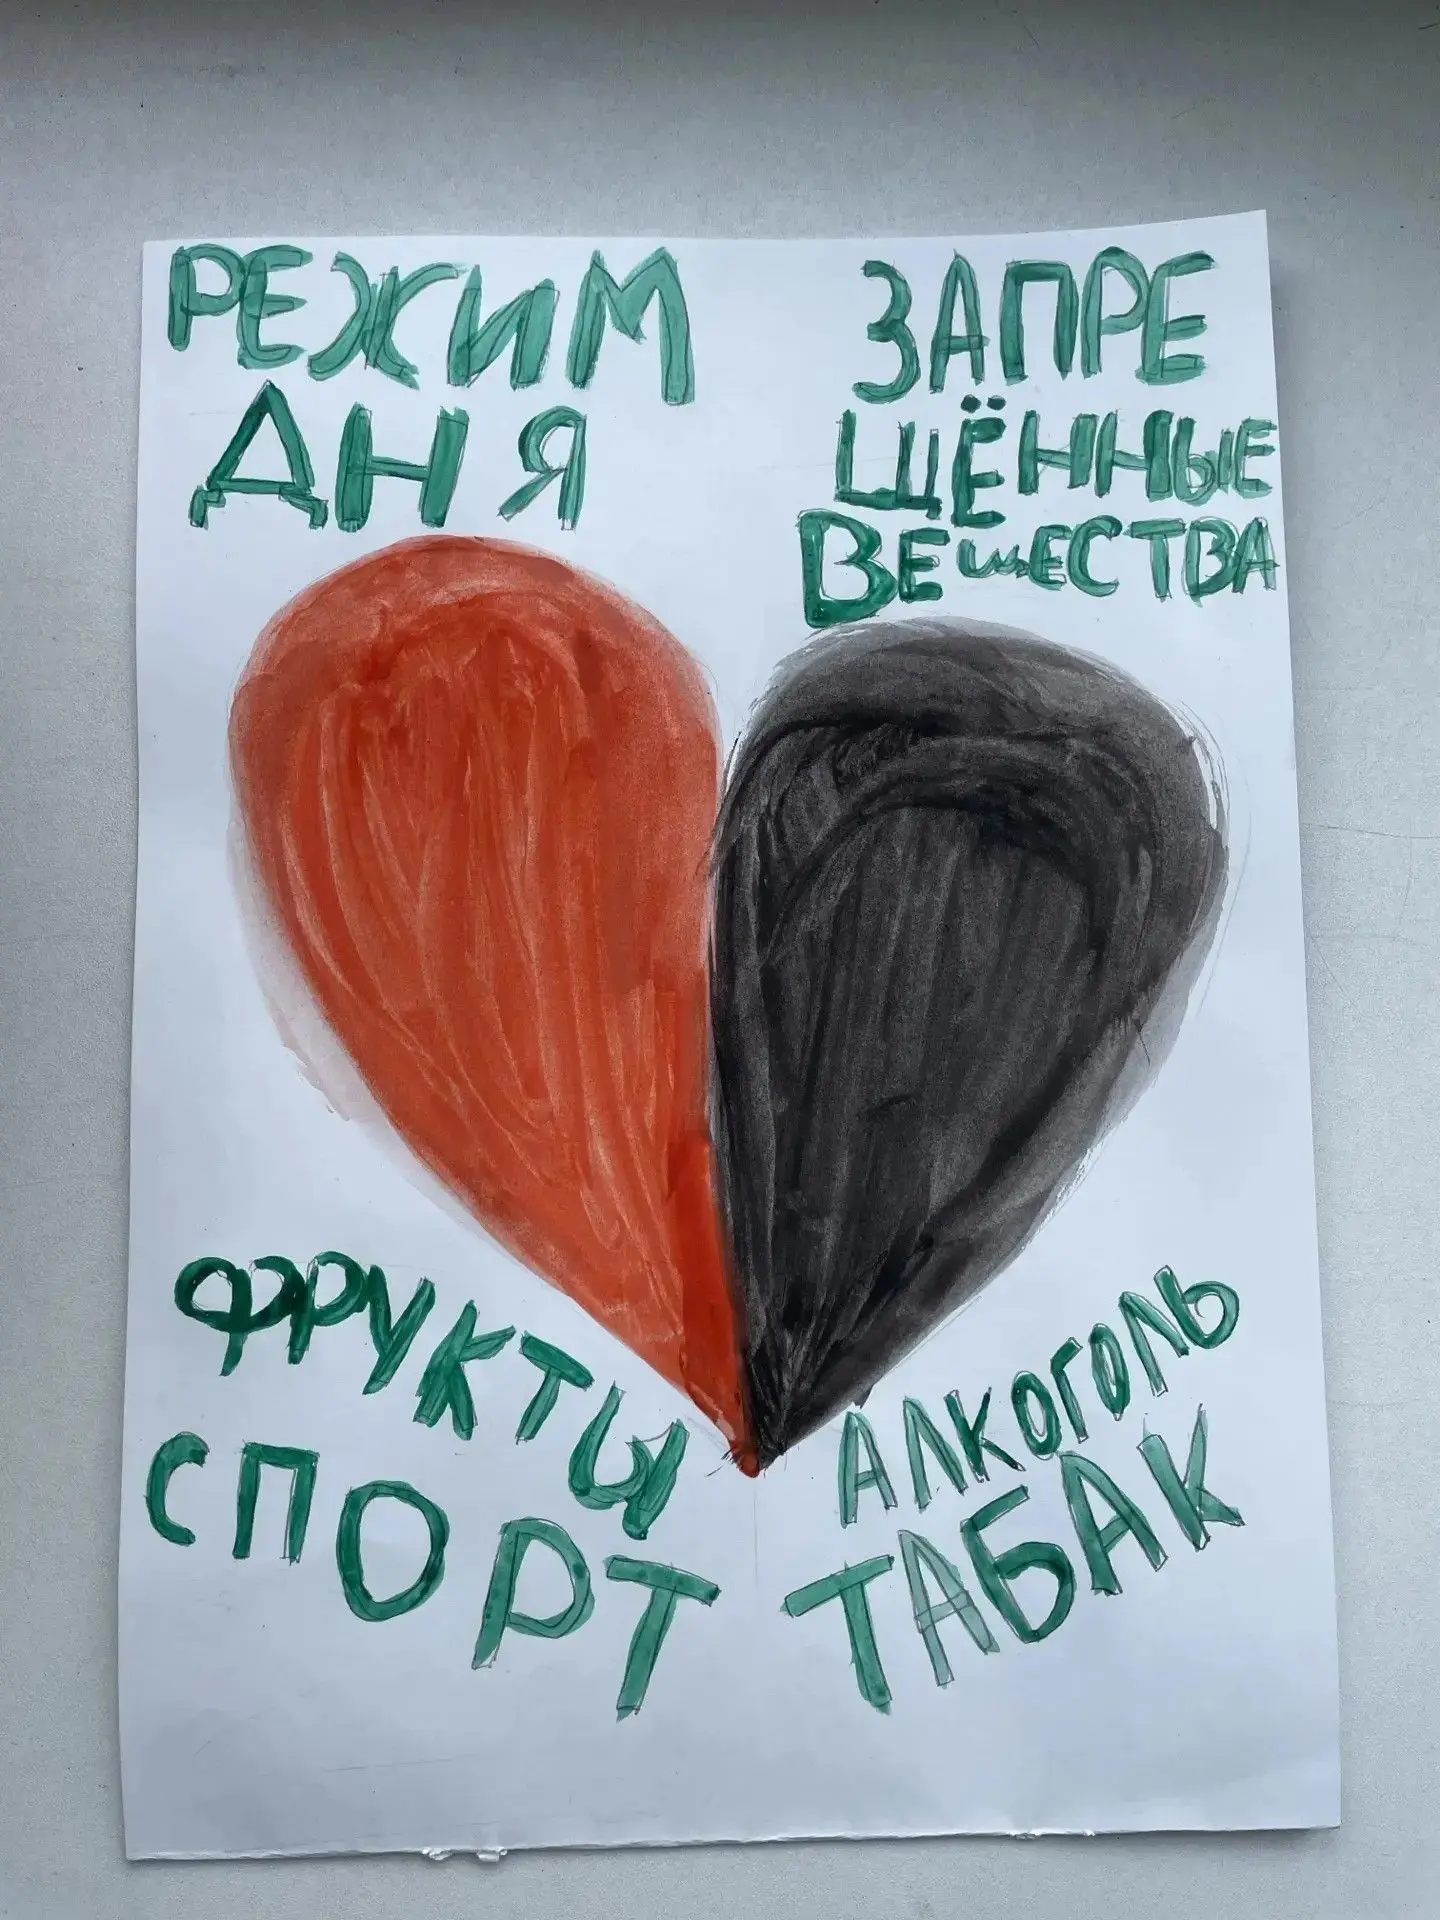 РЕЖИМ
ДНЯ
ЗАПРЕ
ЩЁННЫЕ
ВЕЩЕСТВА
ФРУКТЫ
СПОРТ
АЛКОГОЛЬ
ТАБАК